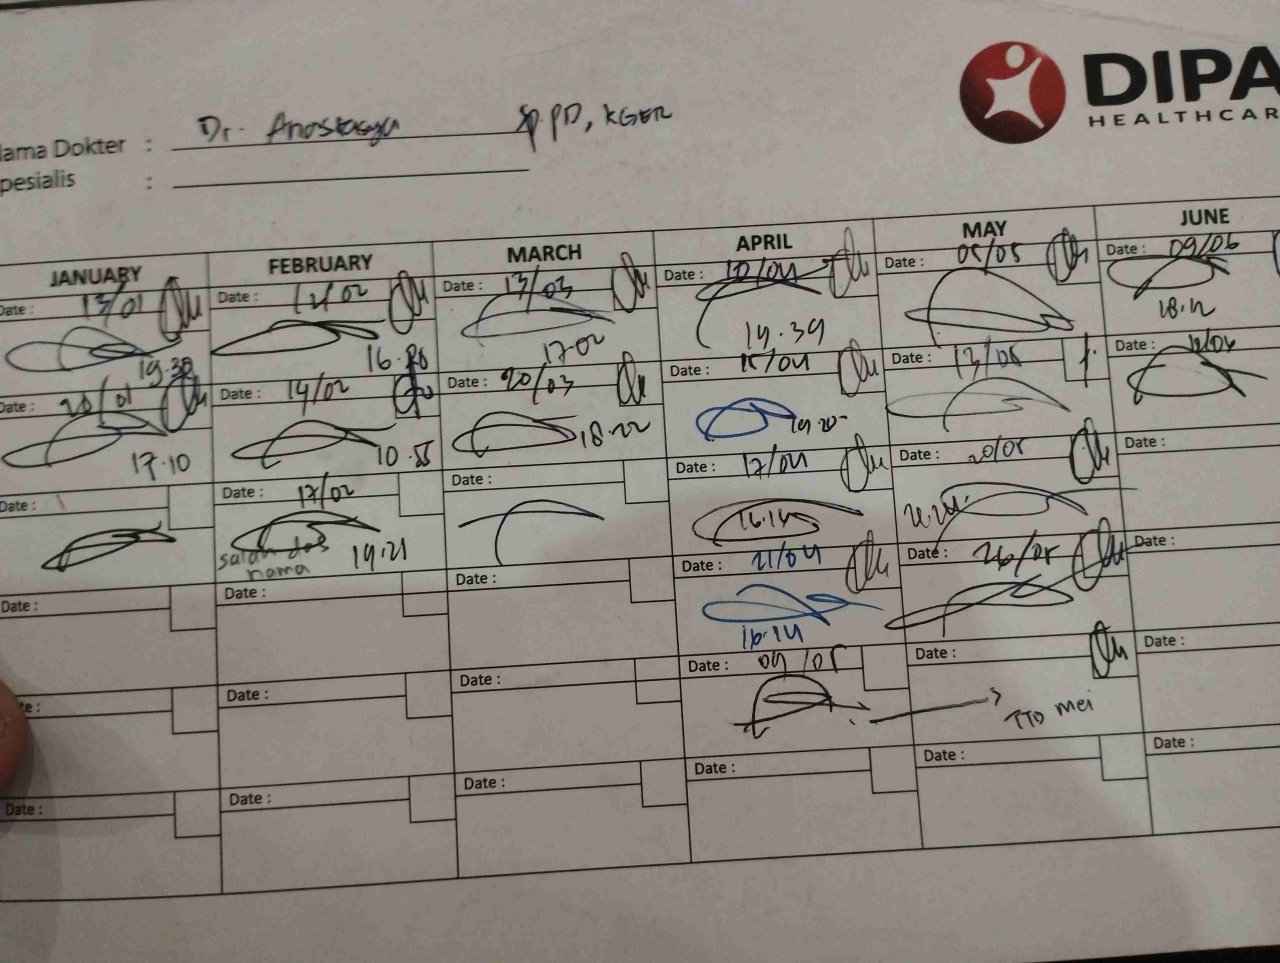 DIPA
HEALTHCAR
ama Dokter : Dr. Anastasya Sp.PD, KGER
pesialis :
JANUARY FEBRUARY MARCH APRIL MAY JUNE
Date : 13/01 Date : 12/02 Date : 13/03 Date : 10/04 Date : 05/05 Date : 09/06
19.30 16.  17.02 19.39 18.12
Date : 20/01 Date : 14/02 Date : 20/03 Date : 15/04 Date : 13/05 Date :
17.10 10.55 18.22 19.20
Date : Date : 17/02 Date : Date : 17/04 Date : 20/05 Date :
salah dos nama 19.21 16.14
Date : Date : Date : Date : 21/04 Date : 26/05 Date :
16.14
te : Date : Date : Date : 09/05 Date : Date :
TTD mei
Date : Date : Date : Date : Date : Date :